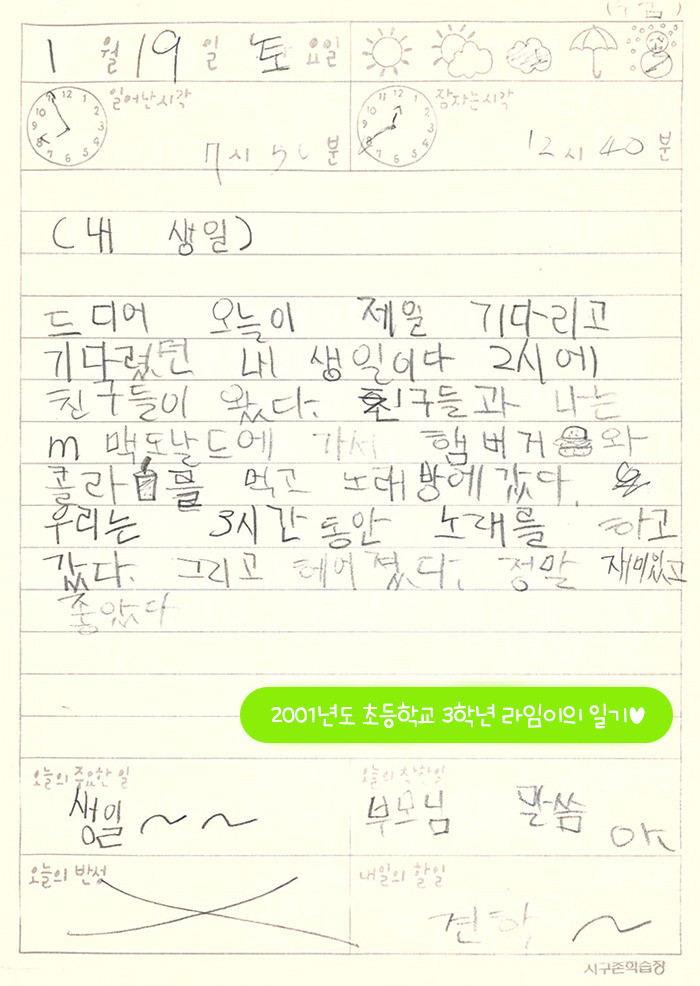 1 월 19 일 토 요일
일어난시각
잠자는시각
7 시 50 분
12 시 40 분
(내 생일)
드디어 오늘이 제일 기다리고
기다렸던 내 생일이다 2시에
친구들이 왔다. 친구들과 나는
m 맥도날드에 가서 햄버거와
콜라를 먹고 노래방에 갔다.
우리는 3시간 동안 노래를 하고
갔다. 그리고 헤어졌다. 정말 재미있고
좋았다
2001년도 초등학교 3학년 라임이의 일기♥
오늘의 주요한 일
생일 ~ ~
오늘의 착한일
부모님 말씀 OK
오늘의 반성
내일의 할일
견학 ~
지구존학습장